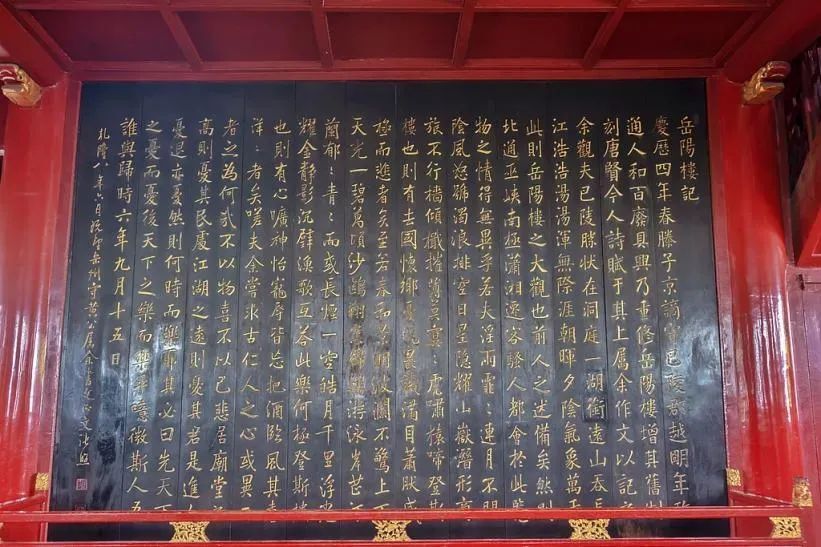 岳陽樓記
慶歷四年春滕子京謫守巴陵郡越明年政
通人和百廢具興乃重修岳陽樓增其舊制
刻唐賢今人詩賦于其上屬余作文以記之
余觀夫巴陵勝狀在洞庭一湖銜遠山吞長
江浩浩湯湯渾無際涯朝暉夕陰氣象萬千
此則岳陽樓之大觀也前人之述備矣然則
北通巫峽南極瀟湘遷客騷人都會於此覽
物之情得無異乎若夫淫雨霏:連月不開
陰風怒號濁浪排空日星隱耀山嶽潛形商
旅不行檣傾檝摧薄暮冥:虎嘯猿啼登斯
樓也則有去國懷鄉憂讒畏譏滿目蕭然感
極而悲者矣至若春和景明波瀾不驚上下
天光一碧萬頃沙鷗翔集錦鱗游泳岸芷汀
蘭郁:青:而或長煙一空皓月千里浮光
耀金靜影沉璧漁歌互答此樂何極登斯樓
也則有心曠神怡寵辱皆忘把酒臨風其喜
洋:者矣嗟夫余嘗求古仁人之心或異二
者之為何哉不以物喜不以己悲居廟堂之
高則憂其民處江湖之遠則憂其君是進亦
憂退亦憂然則何時而樂耶其必曰先天下
之憂而憂後天下之樂而樂乎噫微斯人吾
誰與歸時六年九月十五日
乾隆八年六月既望岳州守黃公屬余書